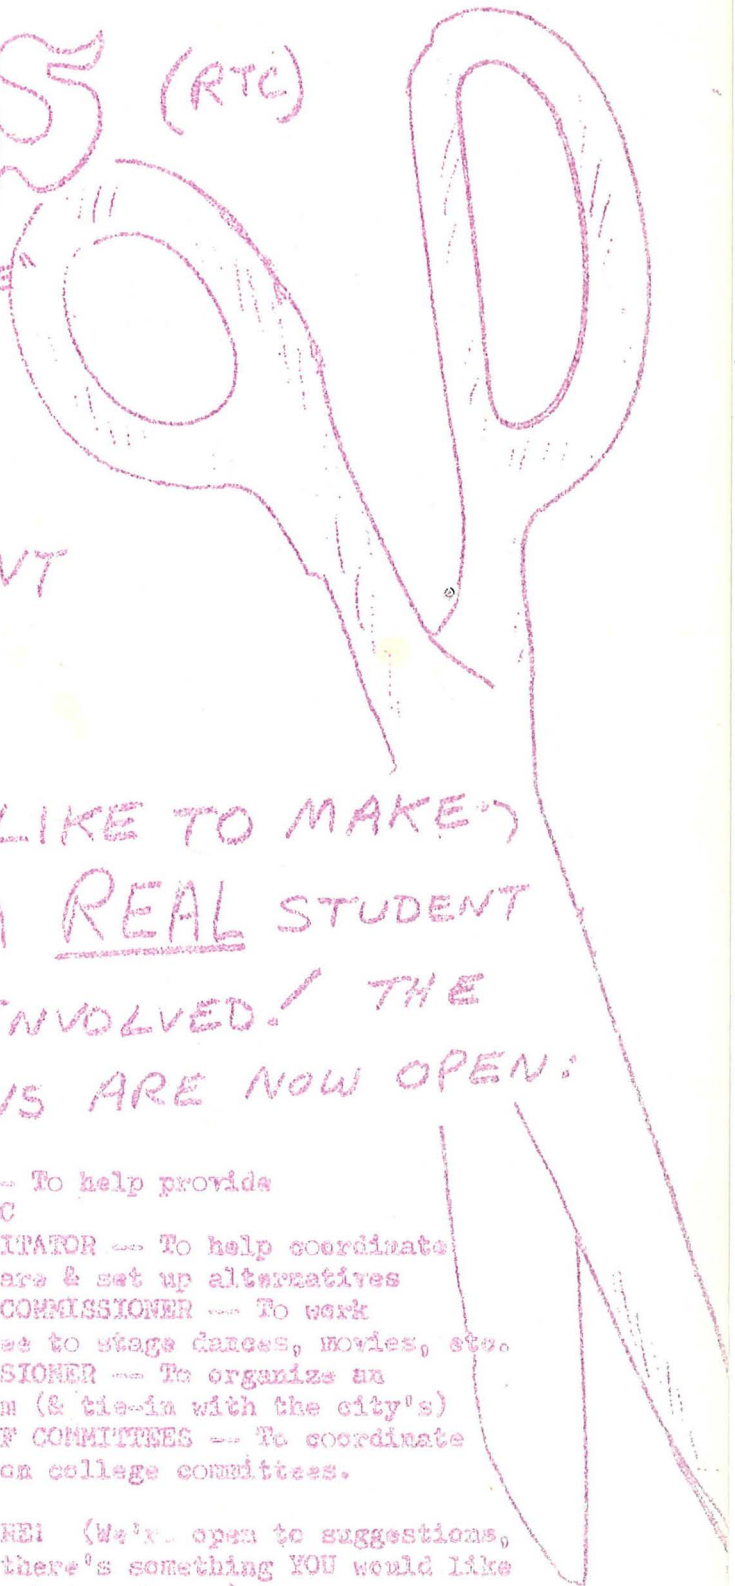 S (RTC)
E"
NT
LIKE TO MAKE
REAL STUDENT
INVOLVED! THE
NS ARE NOW OPEN:
-- To help provide
C
ITATOR -- To help coordinate
are & set up alternatives
COMMISSIONER -- To work
ee to stage dances, movies, etc.
SIONER -- To organize an
m (& tie-in with the city's)
F COMMITTEES -- To coordinate
on college committees.
RE! (We're open to suggestions,
there's something YOU would like